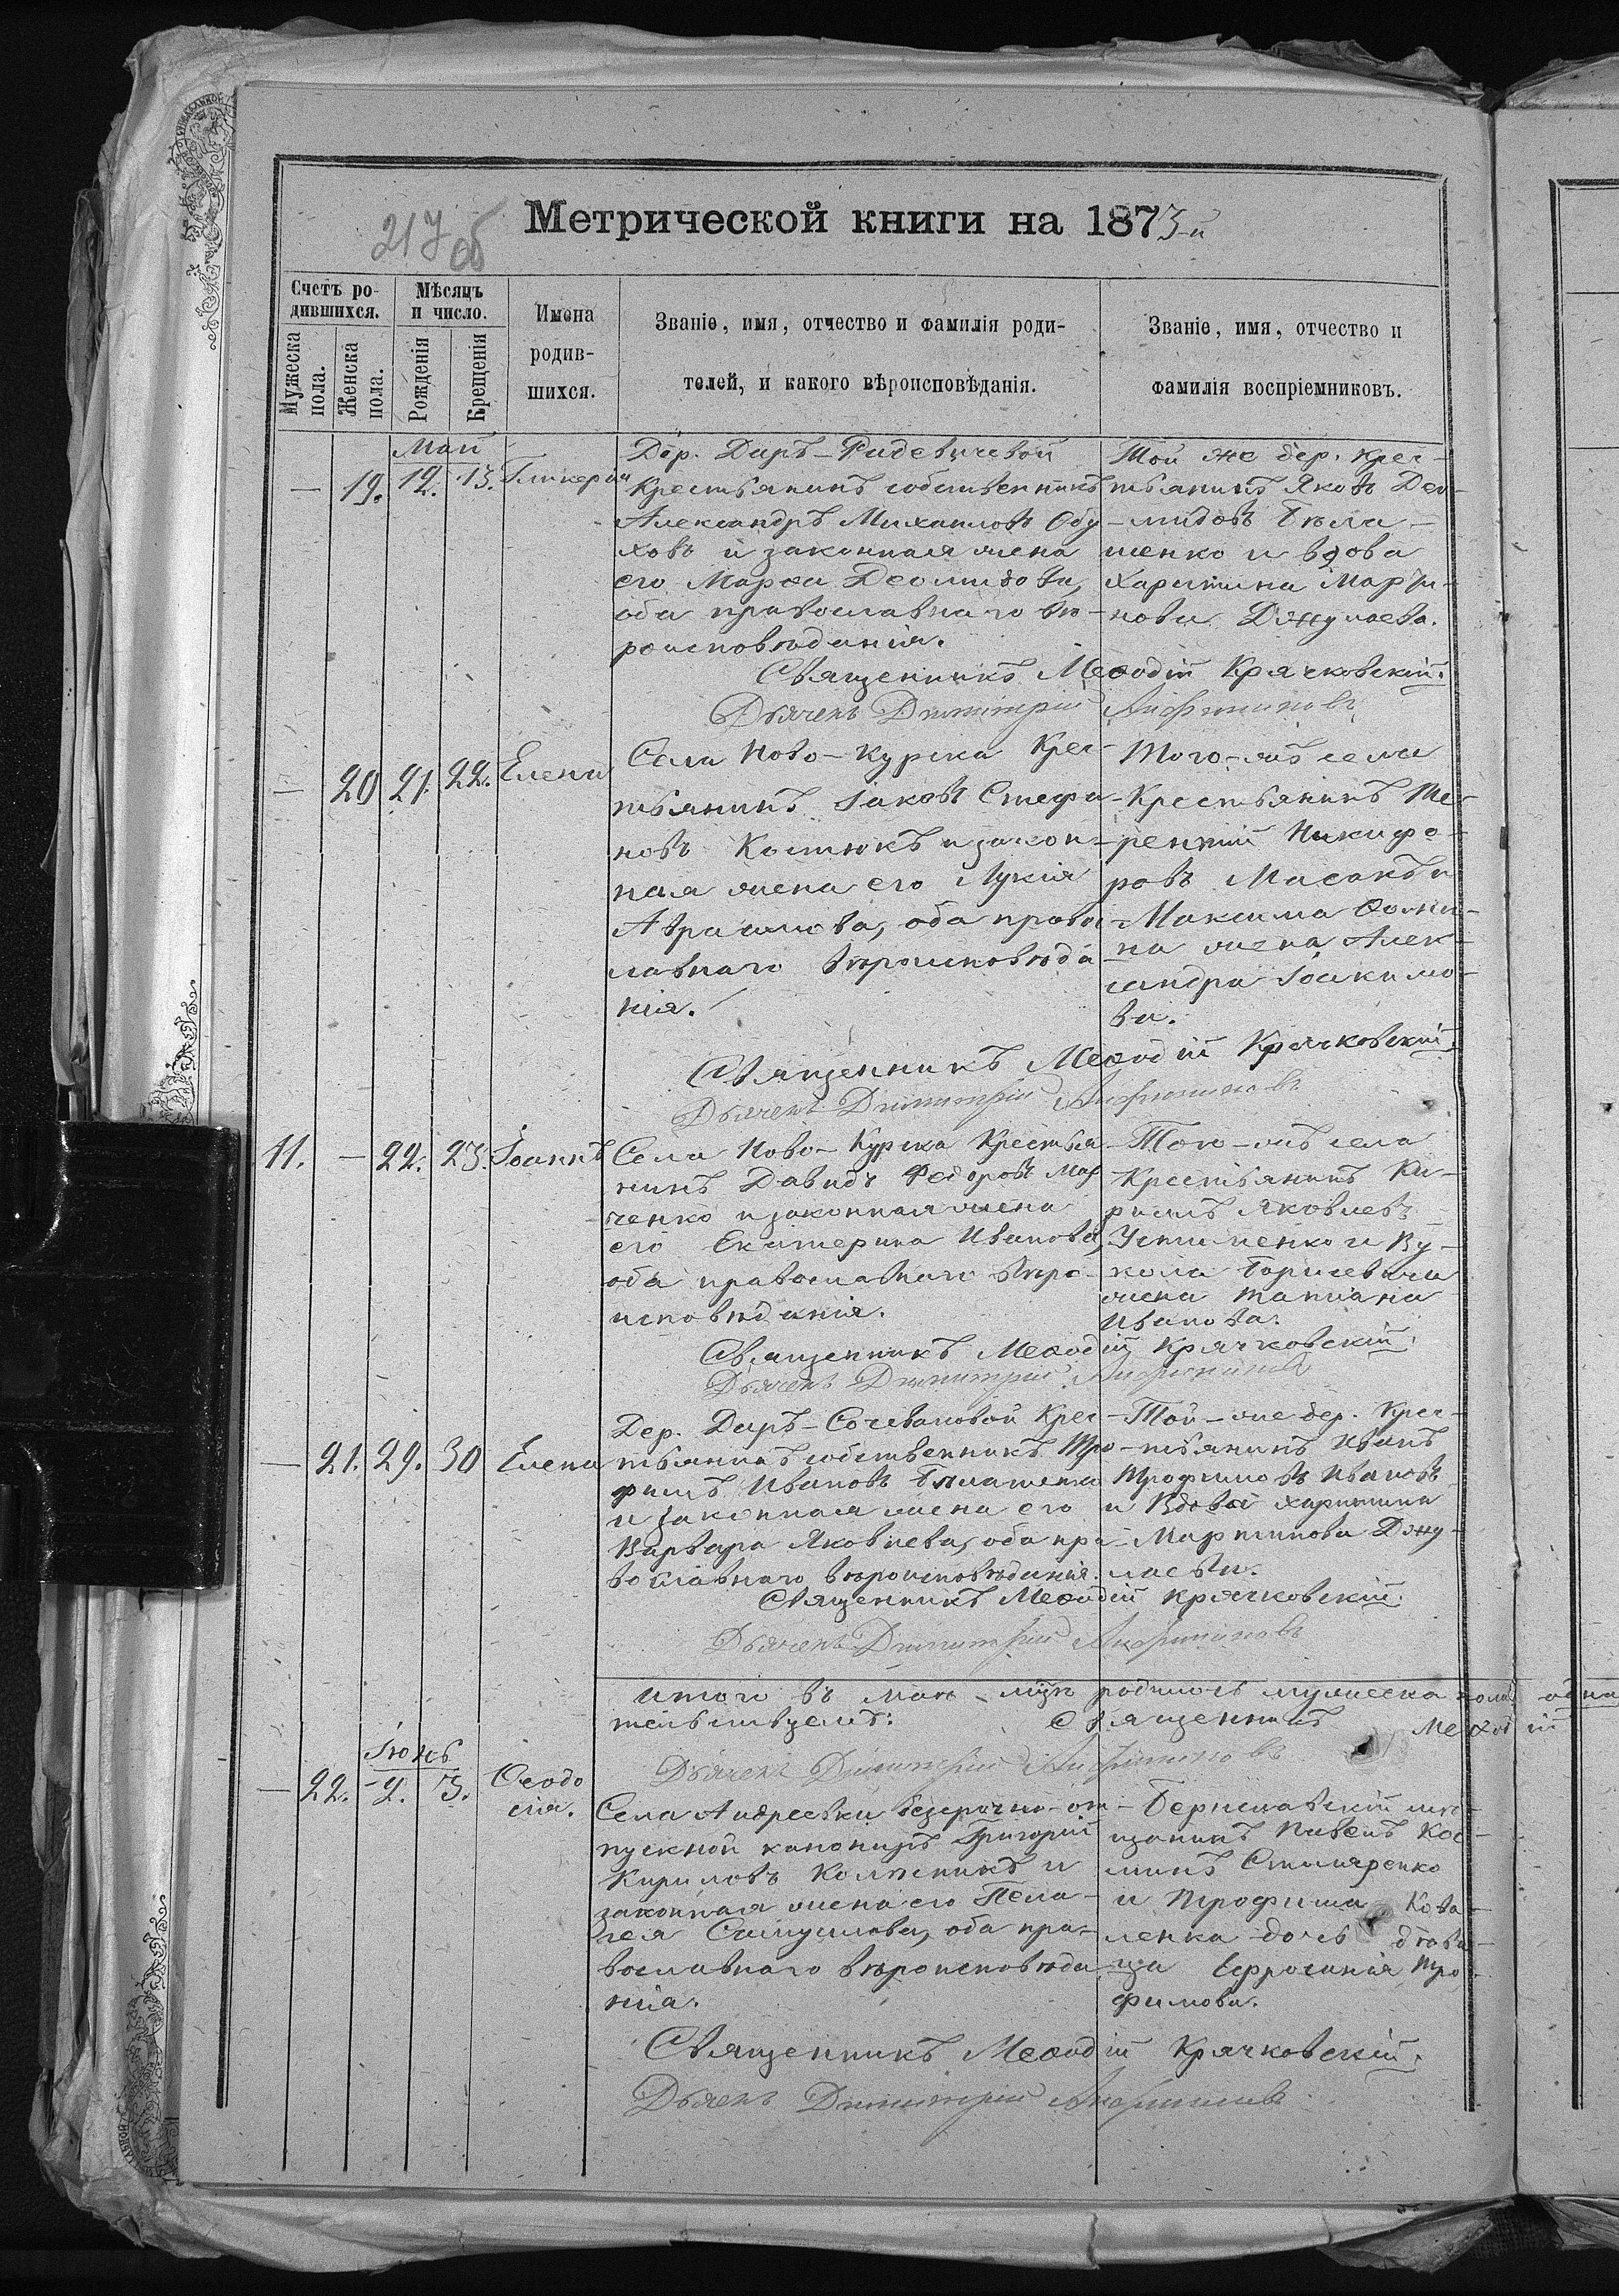 217 об
Метрической книги на 1873-й
Счетъ ро-
дившихся.
Мужеска
пола.
Женска
пола.
Мѣсяцъ
и число.
Рожденія
Крещенія
Имена
родив-
шихся.
Званіе, имя, отчество и фамилія роди-
телей, и какого вѣроисповѣданія.
Званіе, имя, отчество и
фамилія воспріемниковъ.
Май
— 19. 12. 13. Гликерія
Дер. Даръ-Радевичевой
Крестьянинъ собственникъ
Александръ Михаиловъ Обу-
ховъ и законная жена
его Марѳа Деомидова,
оба православнаго вѣ-
роисповѣданія.
Той же дер. крес-
тьянинъ Яковъ Део-
мидовъ Бѣла-
шенко и вдова
Харитина Марти-
нова Джулаева.
Священникъ Меѳодій Крячковскій.
Дьячекъ Димитрій
— 20 21. 22. Елена
Села Ново-Курска Крес-
тьянинъ Іаковъ Стефа-
новъ Костюкъ и закон-
ная жена его Лукія
Аврамова, оба правос-
лавнаго вѣроисповѣда-
нія.
Того-жъ села
Крестьянинъ Те-
рентій Никифо-
ровъ Масакъ и
Максима Ѳоми-
на жена Алек-
сандра Іоакимо-
ва.
Священникъ Меѳодій Крячковскій.
Дьячекъ Димитрій
11. — 22. 23. Іоаннъ
Села Ново-Курска Крестья-
нинъ Давидъ Федоровъ Мар-
ченко и законная жена
его Екатерина Иванова,
оба православнаго вѣро-
исповѣданія.
Того-жъ села
Крестьянинъ Ки-
рилъ Яковлевъ
Устименко и Ву-
кола Борисевича
жена Татіана
Иванова.
Священникъ Меѳодій Крячковскій.
Дьячекъ Димитрій
— 21. 29. 30 Елена
Дер. Даръ-Сочевановой Крес-
тьянинъ собственникъ Тро-
фимъ Ивановъ Бѣлашенко
и законная жена его
Варвара Яковлева, оба пра-
вославнаго вѣроисповѣданія.
Той-же дер. Крес-
тьянинъ Иванъ
Трофимовъ Ивановъ
и Вдова Харитина
Мартинова Джу-
лаева.
Священникъ Меѳодій Крячковскій.
Дьячекъ Димитрій
Итого въ маѣ м-цѣ родилось мужеска пола одна
Священникъ Меѳодій
Дьячекъ Димитрій
Іюнь
— 22. 2. 3. Ѳеодо
сія.
Села Андреевки безсрочно-от-
пускной канониръ Григорій
Кириловъ Колпникъ и
законная жена его Пела-
гея Самуилова, оба пра-
вославнаго вѣроисповѣда-
нія.
Бериславскій мѣ-
щанинъ Павелъ Кос-
минъ Столяренко
и Трофима Кова-
ленка дочь дѣви-
ца Ефросинія Тро-
фимова.
Священникъ Меѳодій Крячковскій.
Дьячекъ Димитрій